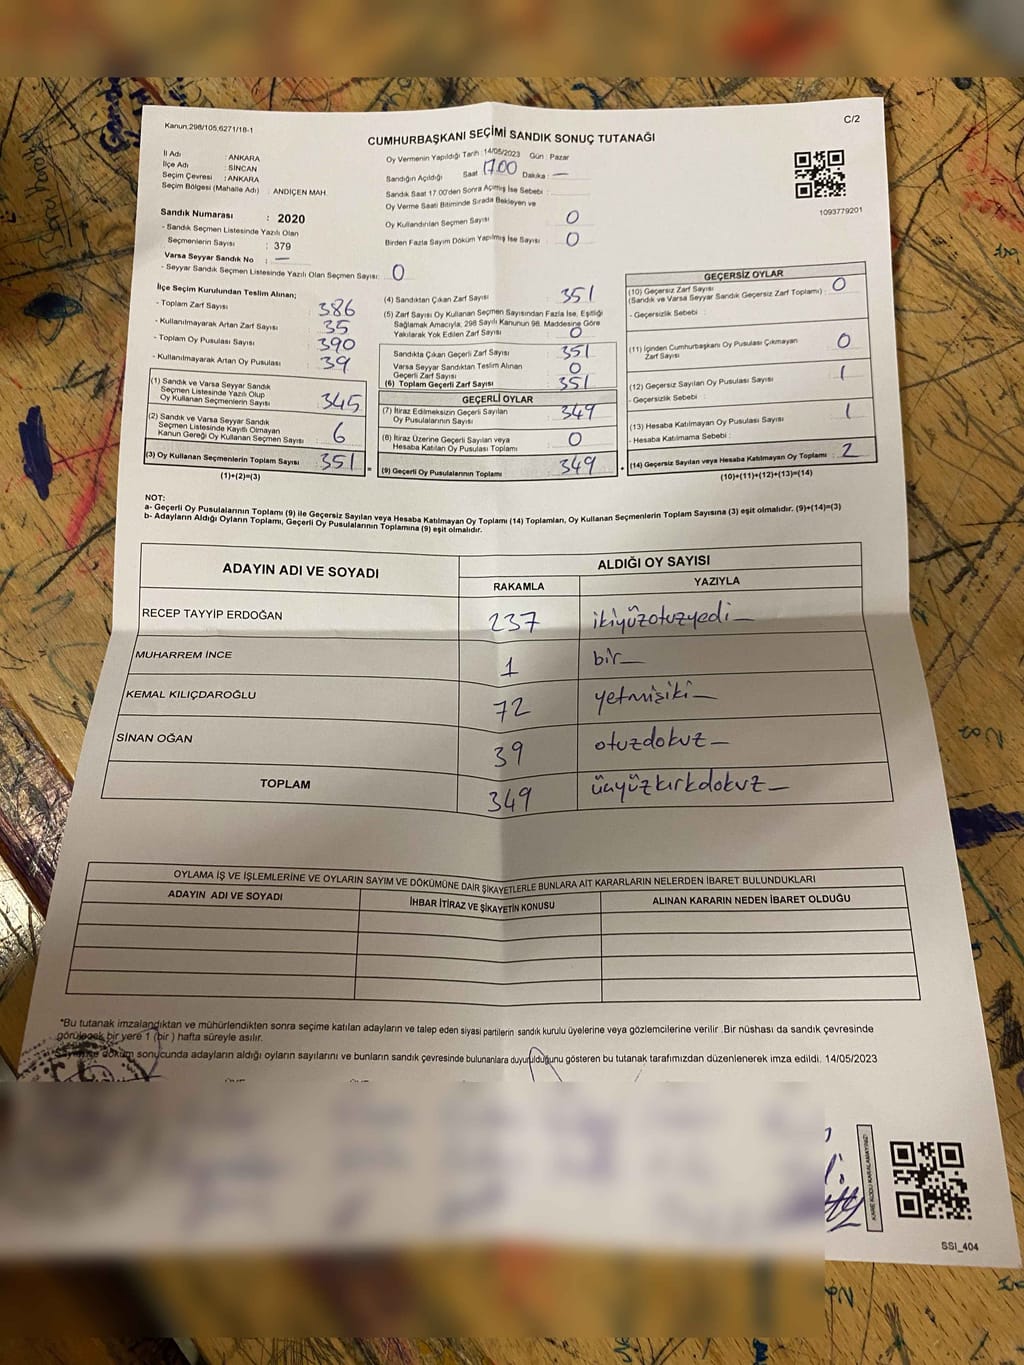 Kanun;298/105,6271/18-1
C/2
CUMHURBAŞKANI SEÇİMİ SANDIK SONUÇ TUTANAĞI
İl Adı : ANKARA
İlçe Adı : SİNCAN
Seçim Çevresi : ANKARA
Seçim Bölgesi (Mahalle Adı) : ANDİÇEN MAH.
Oy Vermenin Yapıldığı Tarih : 14/05/2023 Gün : Pazar
Sandığın Açıldığı Saat 17.00 Dakika : —
Sandık Saat 17.00'den Sonra Açımış İse Sebebi :
Oy Verme Saati Bitiminde Sırada Bekleyen ve
Oy Kullandırılan Seçmen Sayısı : 0
Birden Fazla Sayım Döküm Yapılmış İse Sayısı : 0
1093779201
Sandık Numarası : 2020
- Sandık Seçmen Listesinde Yazılı Olan
Seçmenlerin Sayısı : 379
Varsa Seyyar Sandık No : —
- Seyyar Sandık Seçmen Listesinde Yazılı Olan Seçmen Sayısı: 0
İlçe Seçim Kurulundan Teslim Alınan;
- Toplam Zarf Sayısı : 386
- Kullanılmayarak Artan Zarf Sayısı : 35
- Toplam Oy Pusulası Sayısı : 390
- Kullanılmayarak Artan Oy Pusulası : 39
(1) Sandık ve Varsa Seyyar Sandık
Seçmen Listesinde Yazılı Olup
Oy Kullanan Seçmenlerin Sayısı : 345
(2) Sandık ve Varsa Seyyar Sandık
Seçmen Listesinde Kayıtlı Olmayan
Kanun Gereği Oy Kullanan Seçmen Sayısı : 6
(3) Oy Kullanan Seçmenlerin Toplam Sayısı : 351
(1)+(2)=(3)
(4) Sandıktan Çıkan Zarf Sayısı : 351
(5) Zarf Sayısı Oy Kullanan Seçmen Sayısından Fazla İse, Eşitliği
Sağlamak Amacıyla, 298 Sayılı Kanunun 98. Maddesine Göre
Yakılarak Yok Edilen Zarf Sayısı : 0
Sandıkta Çıkan Geçerli Zarf Sayısı : 351
Varsa Seyyar Sandıktan Teslim Alınan
Geçerli Zarf Sayısı : 0
(6) Toplam Geçerli Zarf Sayısı : 351
GEÇERLİ OYLAR
(7) İtiraz Edilmeksizin Geçerli Sayılan
Oy Pusulalarının Sayısı : 349
(8) İtiraz Üzerine Geçerli Sayılan veya
Hesaba Katılan Oy Pusulası Toplamı : 0
(9) Geçerli Oy Pusulalarının Toplamı : 349
GEÇERSİZ OYLAR
(10) Geçersiz Zarf Sayısı : 0
(Sandık ve Varsa Seyyar Sandık Geçersiz Zarf Toplamı)
- Geçersizlik Sebebi :
(11) İçinden Cumhurbaşkanı Oy Pusulası Çıkmayan
Zarf Sayısı : 0
(12) Geçersiz Sayılan Oy Pusulası Sayısı : 1
- Geçersizlik Sebebi :
(13) Hesaba Katılmayan Oy Pusulası Sayısı : 1
- Hesaba Katılmama Sebebi :
(14) Geçersiz Sayılan veya Hesaba Katılmayan Oy Toplamı : 2
(10)+(11)+(12)+(13)=(14)
NOT:
a- Geçerli Oy Pusulalarının Toplamı (9) ile Geçersiz Sayılan veya Hesaba Katılmayan Oy Toplamı (14) Toplamları, Oy Kullanan Seçmenlerin Toplam Sayısına (3) eşit olmalıdır. (9)+(14)=(3)
b- Adayların Aldığı Oyların Toplamı, Geçerli Oy Pusulalarının Toplamına (9) eşit olmalıdır.
ADAYIN ADI VE SOYADI
ALDIĞI OY SAYISI
RAKAMLA YAZIYLA
RECEP TAYYİP ERDOĞAN 237 ikiyüzotuzyedi
MUHARREM İNCE 1 bir
KEMAL KILIÇDAROĞLU 72 yetmişiki
SİNAN OĞAN 39 otuzdokuz
TOPLAM 349 üçyüzkırkdokuz
OYLAMA İŞ VE İŞLEMLERİNE VE OYLARIN SAYIM VE DÖKÜMÜNE DAİR ŞİKAYETLERLE BUNLARA AİT KARARLARIN NELERDEN İBARET BULUNDUKLARI
ADAYIN ADI VE SOYADI İHBAR İTİRAZ VE ŞİKAYETİN KONUSU ALINAN KARARIN NEDEN İBARET OLDUĞU
*Bu tutanak imzalandıktan ve mühürlendikten sonra seçime katılan adayların ve talep eden siyasi partilerin sandık kurulu üyelerine veya gözlemcilerine verilir .Bir nüshası da sandık çevresinde
görülecek bir yere 1 (bir ) hafta süreyle asılır.
döküm sonucunda adayların aldığı oyların sayılarını ve bunların sandık çevresinde bulunanlara duyurulduğunu gösteren bu tutanak tarafımızdan düzenlenerek imza edildi. 14/05/2023
KARE KODU KARALAMAYINIZ!
SSI_404